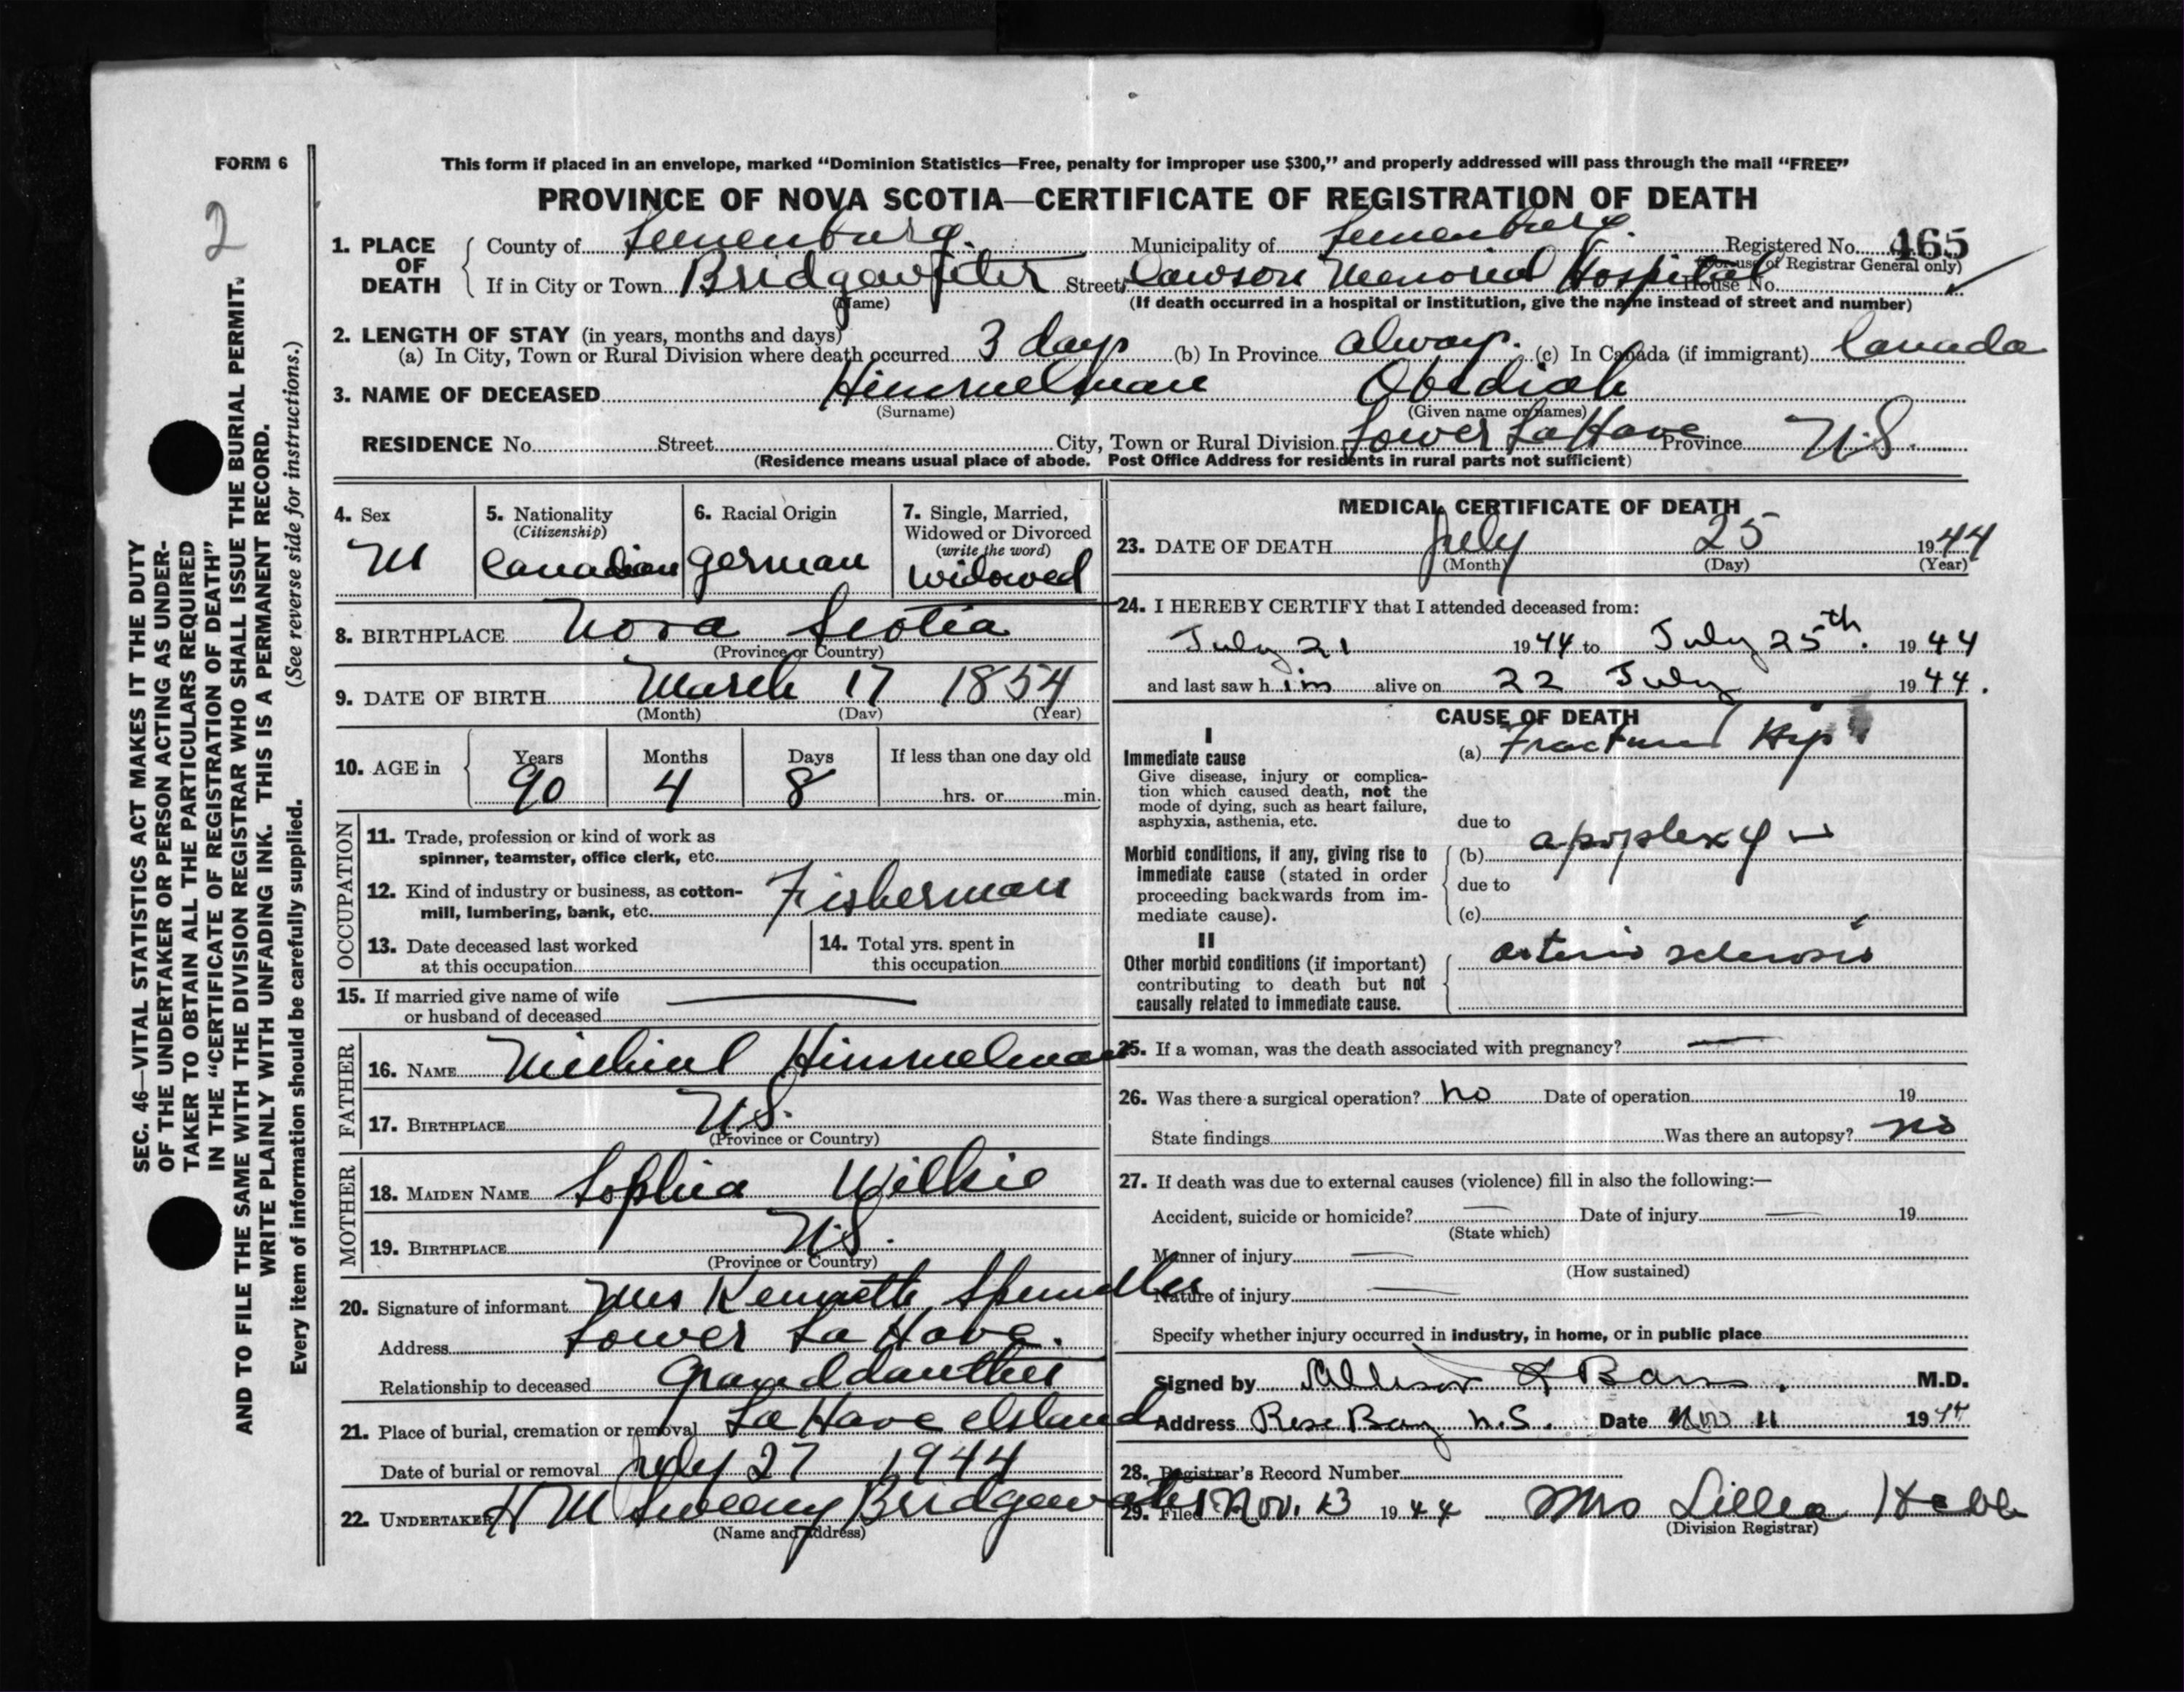 FORM 6
2
This form if placed in an envelope, marked “Dominion Statistics—Free, penalty for improper use $300,” and properly addressed will pass through the mail “FREE”
PROVINCE OF NOVA SCOTIA—CERTIFICATE OF REGISTRATION OF DEATH
1. PLACE OF DEATH County of Lunenburg. Municipality of Lunenburg. Registered No. 465
(For use of Registrar General only)
If in City or Town Bridgewater Street Dawson Memorial Hospital House No.
(Name) (If death occurred in a hospital or institution, give the name instead of street and number)
2. LENGTH OF STAY (in years, months and days)
(a) In City, Town or Rural Division where death occurred 3 days (b) In Province always. (c) In Canada (if immigrant) Canada
3. NAME OF DECEASED Himmelman Obediah
(Surname) (Given name or names)
RESIDENCE No. Street City, Town or Rural Division Lower LaHave Province N.S.
(Residence means usual place of abode. Post Office Address for residents in rural parts not sufficient)
4. Sex
M
5. Nationality
(Citizenship)
Canadian
6. Racial Origin
German
7. Single, Married,
Widowed or Divorced
(write the word)
Widowed
8. BIRTHPLACE Nova Scotia
(Province or Country)
9. DATE OF BIRTH March 17 1854
(Month) (Day) (Year)
10. AGE in Years Months Days If less than one day old
90 4 8 hrs. or min.
OCCUPATION
11. Trade, profession or kind of work as
spinner, teamster, office clerk, etc.
12. Kind of industry or business, as cotton-
mill, lumbering, bank, etc. Fisherman
13. Date deceased last worked
at this occupation
14. Total yrs. spent in
this occupation
15. If married give name of wife
or husband of deceased
FATHER
16. NAME Michial Himmelman
17. BIRTHPLACE N.S.
(Province or Country)
MOTHER
18. MAIDEN NAME Sophia Wilkie
19. BIRTHPLACE N.S.
(Province or Country)
20. Signature of informant Mrs Kenneth Spindler
Address Lower La Have.
Relationship to deceased Granddauther
21. Place of burial, cremation or removal La Have Island
Date of burial or removal July 27 1944
22. UNDERTAKER H M Sweeny Bridgewater
(Name and address)
MEDICAL CERTIFICATE OF DEATH
23. DATE OF DEATH July 25 1944
(Month) (Day) (Year)
24. I HEREBY CERTIFY that I attended deceased from:
July 21 1944 to July 25th. 1944
and last saw him alive on 22 July 1944.
CAUSE OF DEATH
I
Immediate cause
Give disease, injury or complica-
tion which caused death, not the
mode of dying, such as heart failure,
asphyxia, asthenia, etc.
(a) Fractured Hip
due to
Morbid conditions, if any, giving rise to
immediate cause (stated in order
proceeding backwards from im-
mediate cause).
(b) apoplexy
due to
(c)
II
Other morbid conditions (if important)
contributing to death but not
causally related to immediate cause.
arterio sclerosis
25. If a woman, was the death associated with pregnancy? —
26. Was there a surgical operation? no Date of operation 19
State findings Was there an autopsy? no
27. If death was due to external causes (violence) fill in also the following:—
Accident, suicide or homicide? — Date of injury — 19
(State which)
Manner of injury —
(How sustained)
Nature of injury —
Specify whether injury occurred in industry, in home, or in public place
Signed by M.D.
Address Rose Bay N.S. Date Nov 11 1944
28. Registrar's Record Number
29. Filed Nov. 13 1944 Mrs Lillia Hebb
(Division Registrar)
SEC. 46—VITAL STATISTICS ACT MAKES IT THE DUTY
OF THE UNDERTAKER OR PERSON ACTING AS UNDER-
TAKER TO OBTAIN ALL THE PARTICULARS REQUIRED
IN THE “CERTIFICATE OF REGISTRATION OF DEATH”
AND TO FILE THE SAME WITH THE DIVISION REGISTRAR WHO SHALL ISSUE THE BURIAL PERMIT.
WRITE PLAINLY WITH UNFADING INK. THIS IS A PERMANENT RECORD.
Every item of information should be carefully supplied. (See reverse side for instructions.)